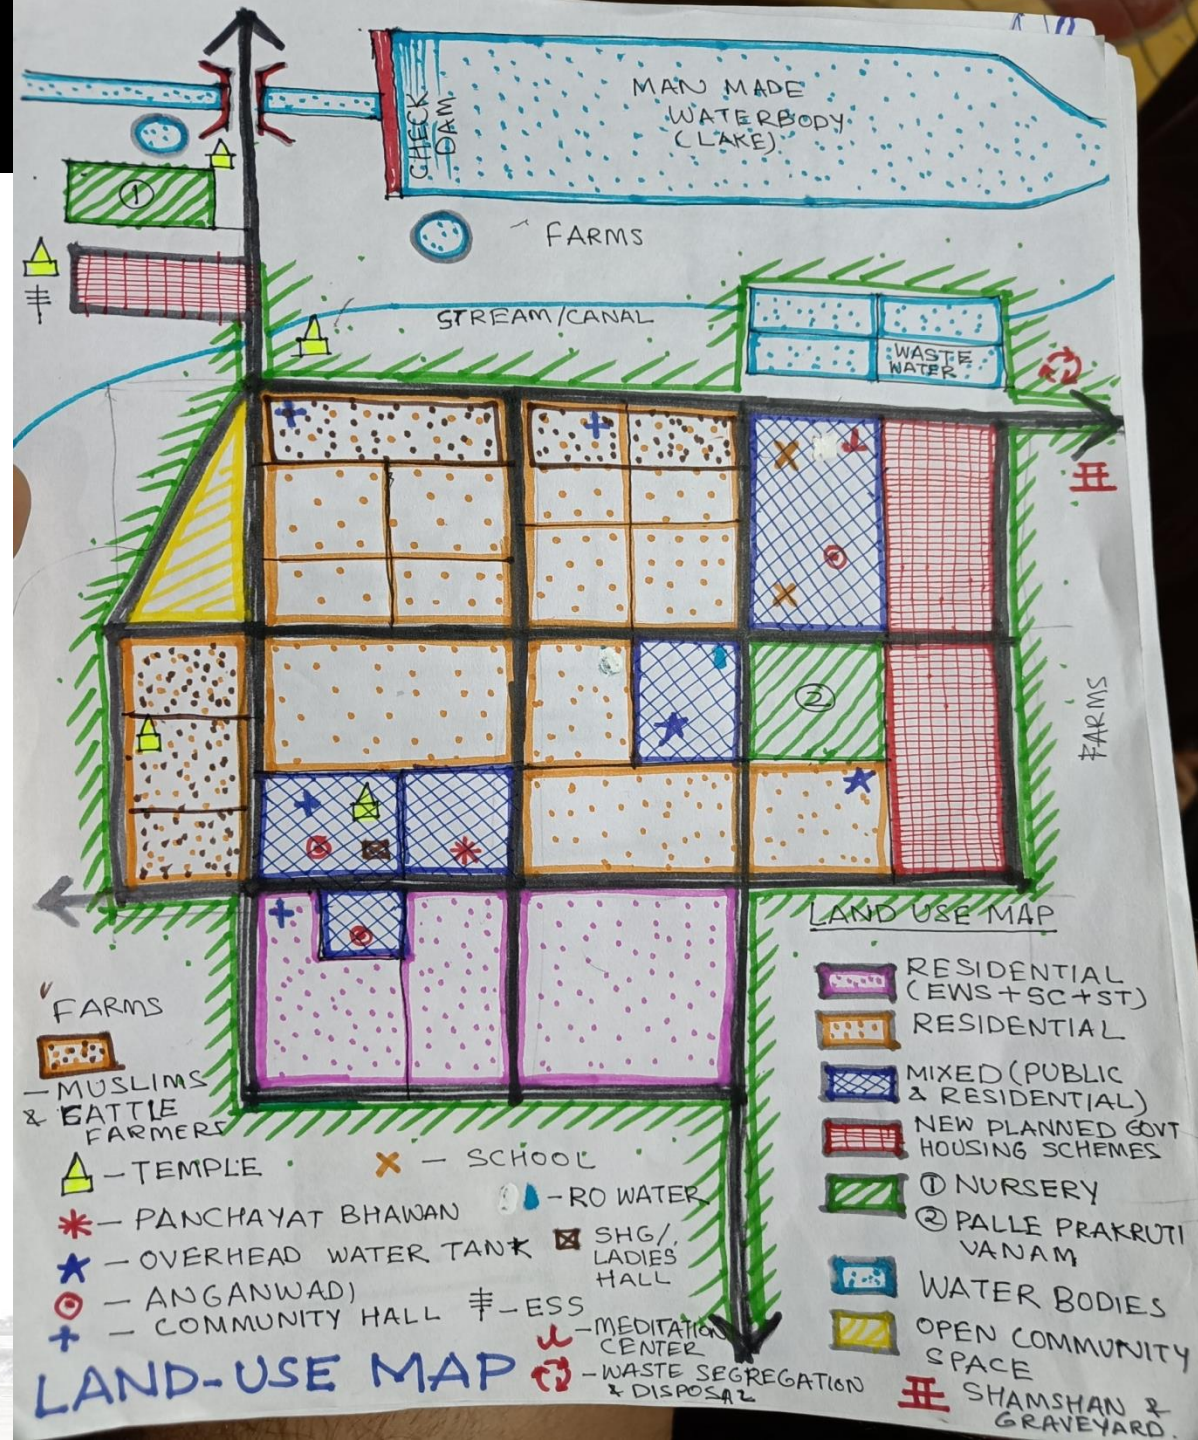 MAN MADE
WATERBODY
(LAKE)
CHECK
DAM
①
FARMS
STREAM/CANAL
WASTE
WATER
②
FARMS
LAND USE MAP
RESIDENTIAL
(EWS+SC+ST)
RESIDENTIAL
MIXED (PUBLIC
& RESIDENTIAL)
NEW PLANNED GOVT
HOUSING SCHEMES
① NURSERY
② PALLE PRAKRUTI
VANAM
WATER BODIES
OPEN COMMUNITY
SPACE
SHAMSHAN &
GRAVEYARD.
FARMS
- MUSLIMS
& CATTLE
FARMERS
- TEMPLE
- SCHOOL
- PANCHAYAT BHAWAN
- RO WATER
- OVERHEAD WATER TANK
SHG/
LADIES
HALL
- ANGANWADI
- COMMUNITY HALL
- ESS
- MEDITATION
CENTER
- WASTE SEGREGATION
& DISPOSAL
LAND-USE MAP